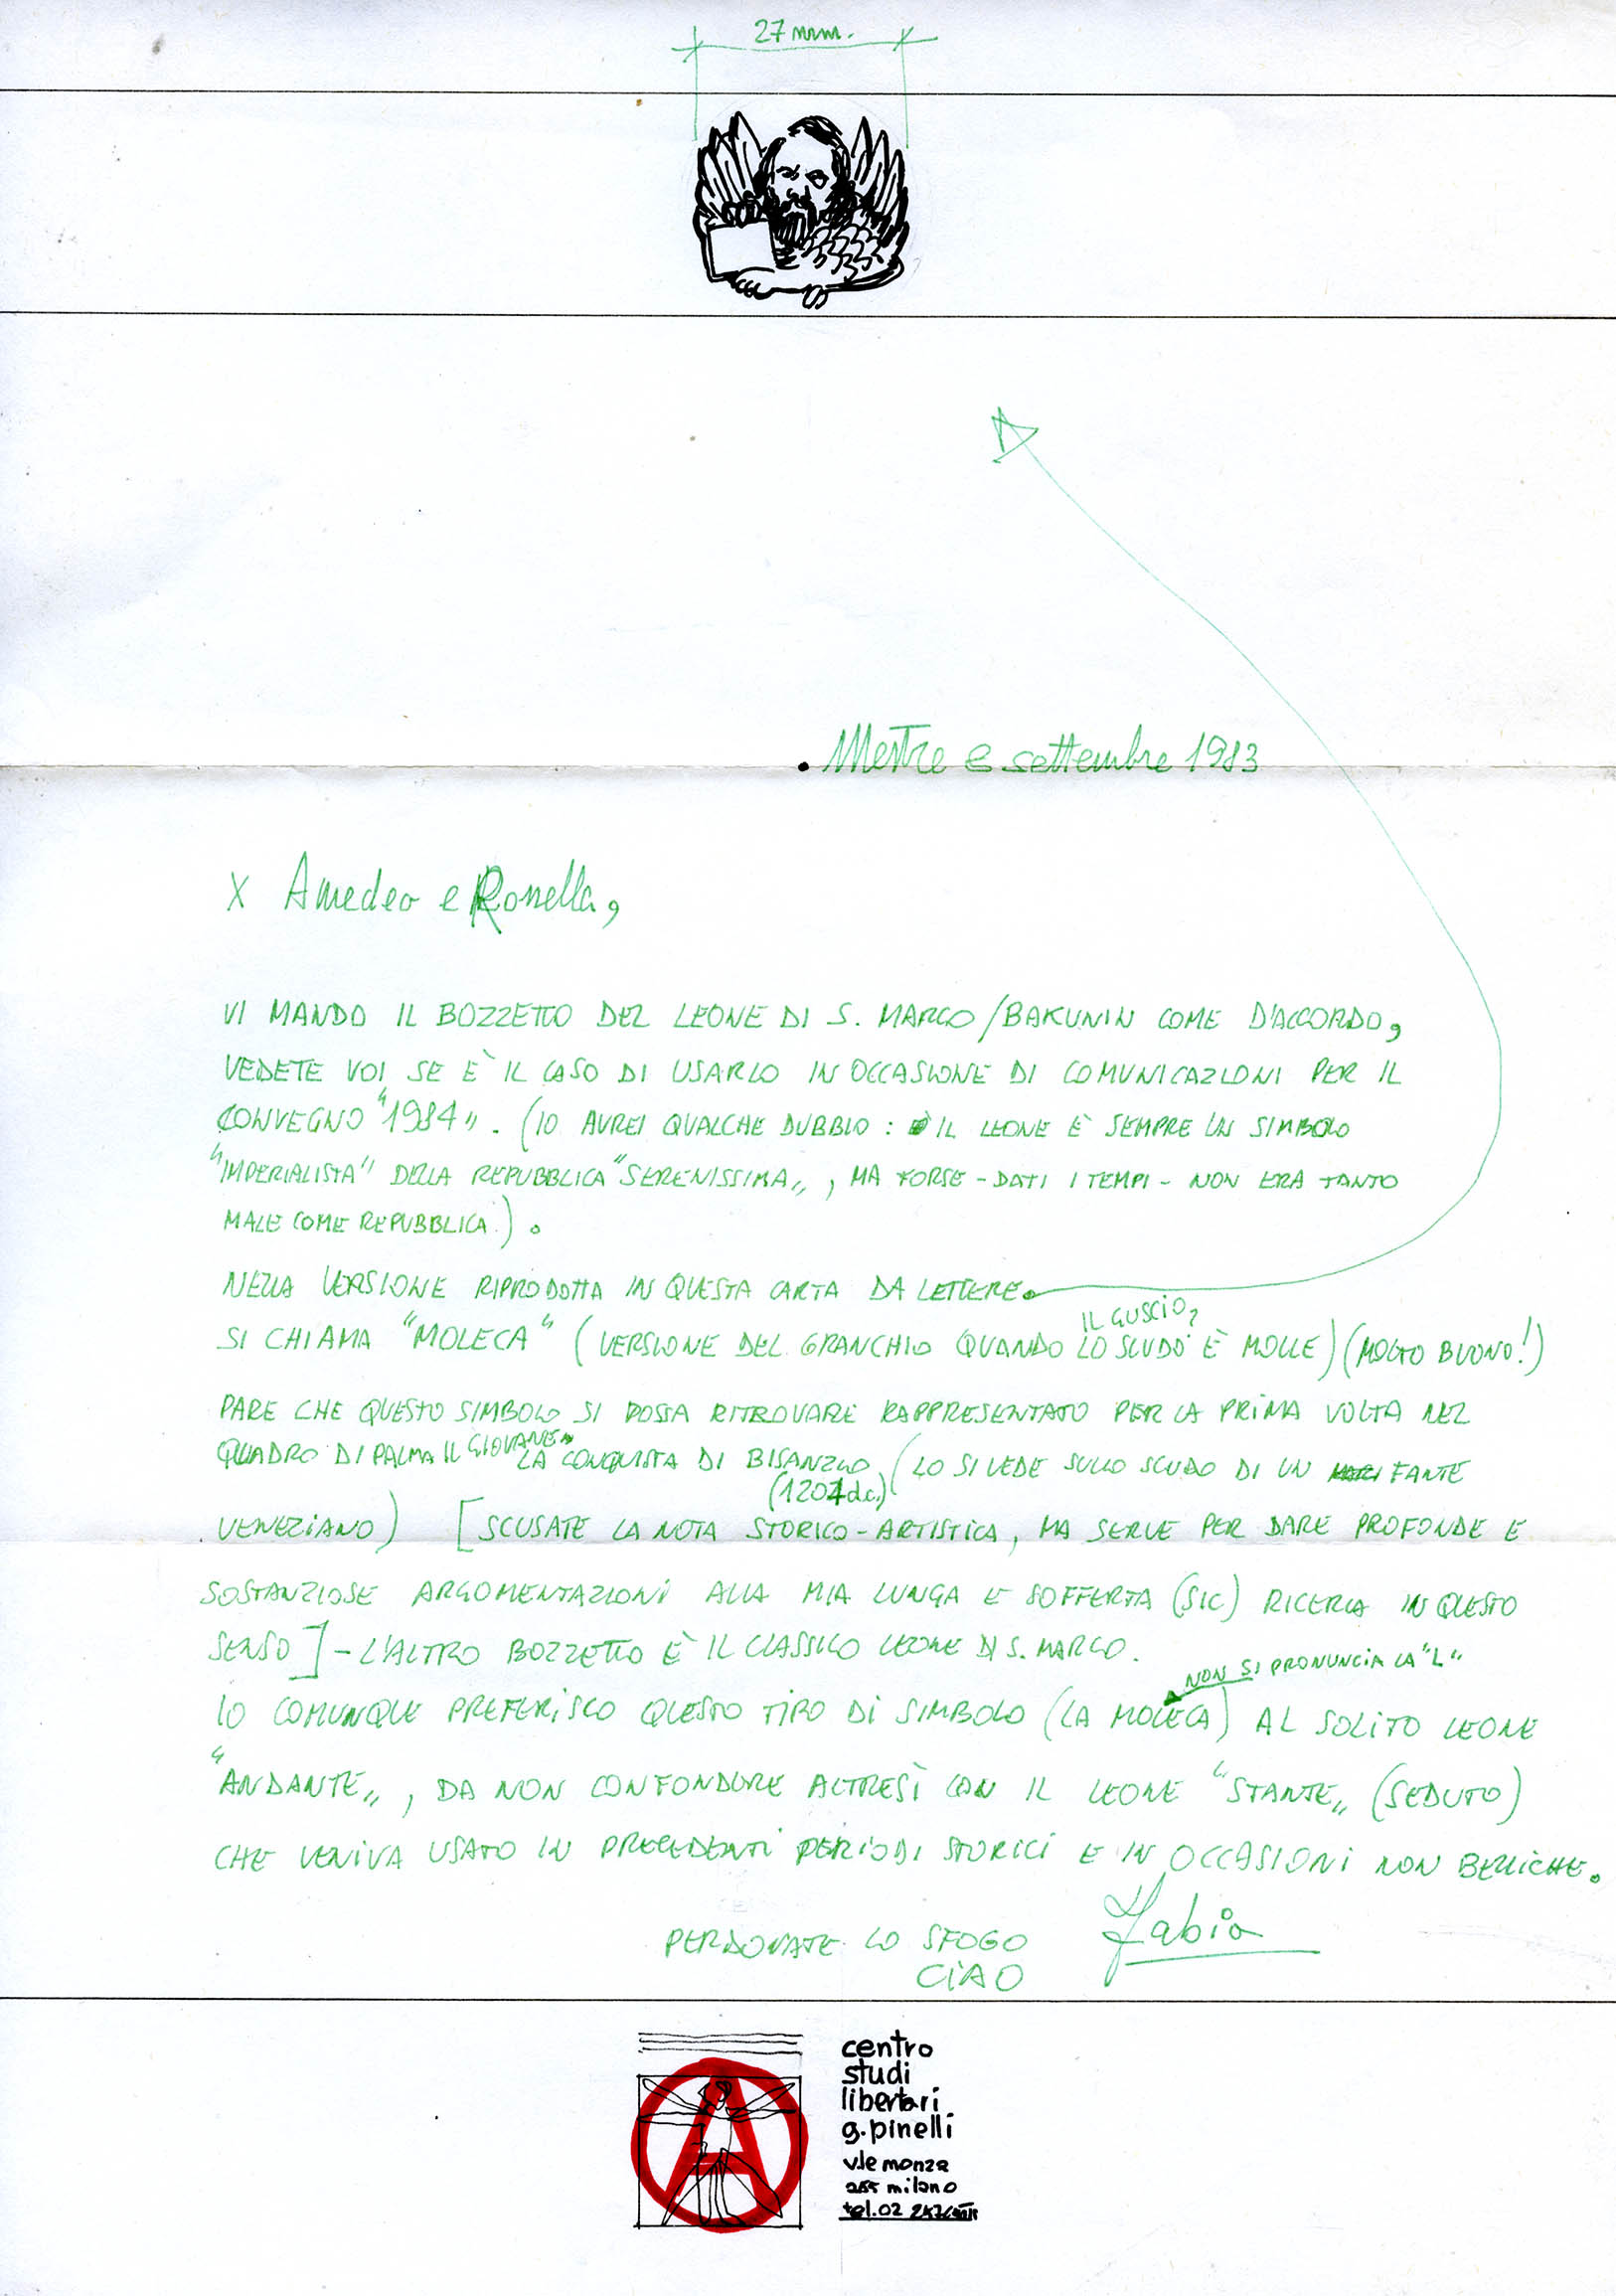 27 mm.
Mestre 8 settembre 1983
X Amedeo e Rossella,
VI MANDO IL BOZZETTO DEL LEONE DI S. MARCO/BAKUNIN COME D'ACCORDO,
VEDETE VOI SE È IL CASO DI USARLO IN OCCASIONE DI COMUNICAZIONI PER IL
CONVEGNO "1984". (IO AVREI QUALCHE DUBBIO: IL LEONE È SEMPRE UN SIMBOLO
"IMPERIALISTA" DELLA REPUBBLICA "SERENISSIMA", MA FORSE - DATI I TEMPI - NON ERA TANTO
MALE COME REPUBBLICA.).
NELLA VERSIONE RIPRODOTTA IN QUESTA CARTA DA LETTERE
IL GUSCIO?
SI CHIAMA "MOLECA" (VERSIONE DEL GRANCHIO QUANDO LO SCUDO È MOLLE) (MOLTO BUONO!)
PARE CHE QUESTO SIMBOLO SI POSSA RITROVARE RAPPRESENTATO PER LA PRIMA VOLTA NEL
QUADRO DI PALMA IL GIOVANE LA CONQUISTA DI BISANZIO (LO SI VEDE SULLO SCUDO DI UN FANTE
(1204 d.c.)
VENEZIANO) [SCUSATE LA NOTA STORICO-ARTISTICA, MA SERVE PER DARE PROFONDE E
SOSTANZIOSE ARGOMENTAZIONI ALLA MIA LUNGA E SOFFERTA (SIC) RICERCA IN QUESTO
SENSO] - L'ALTRO BOZZETTO È IL CLASSICO LEONE DI S. MARCO.
NON SI PRONUNCIA LA "L"
IO COMUNQUE PREFERISCO QUESTO TIPO DI SIMBOLO (LA MOLECA) AL SOLITO LEONE
"ANDANTE", DA NON CONFONDERE ALTRESÌ CON IL LEONE "STANTE" (SEDUTO)
CHE VENIVA USATO IN PRECEDENTI PERIODI STORICI E IN OCCASIONI NON BELLICHE.
PERDONATE LO SFOGO Fabio
CIAO
A
centro
studi
libertari
g. pinelli
v.le monza
255 milano
tel. 02